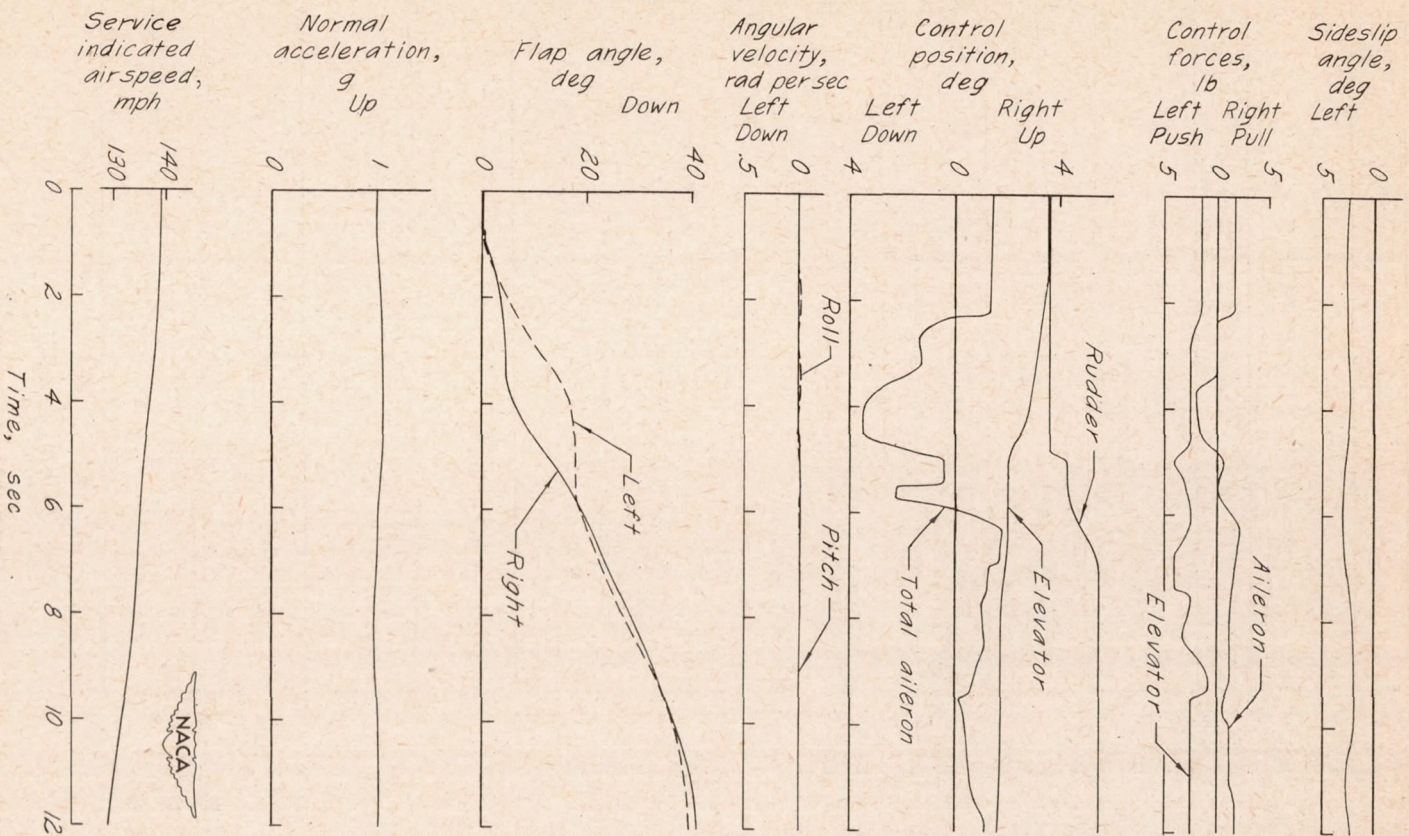 Service
indicated
airspeed,
mph
130
140
Normal
acceleration,
g
Up
0
1
Flap angle,
deg
Down
0
20
40
Left
Right
Angular
velocity,
rad per sec
Left
Down
.5
0
Roll
Pitch
Control
position,
deg
Left
Down
Right
Up
4
0
4
Rudder
Elevator
Total aileron
Control
forces,
lb
Left
Push
Right
Pull
5
0
5
Aileron
Elevator
Sideslip
angle,
deg
Left
5
0
0
2
4
6
8
10
12
Time, sec
NACA